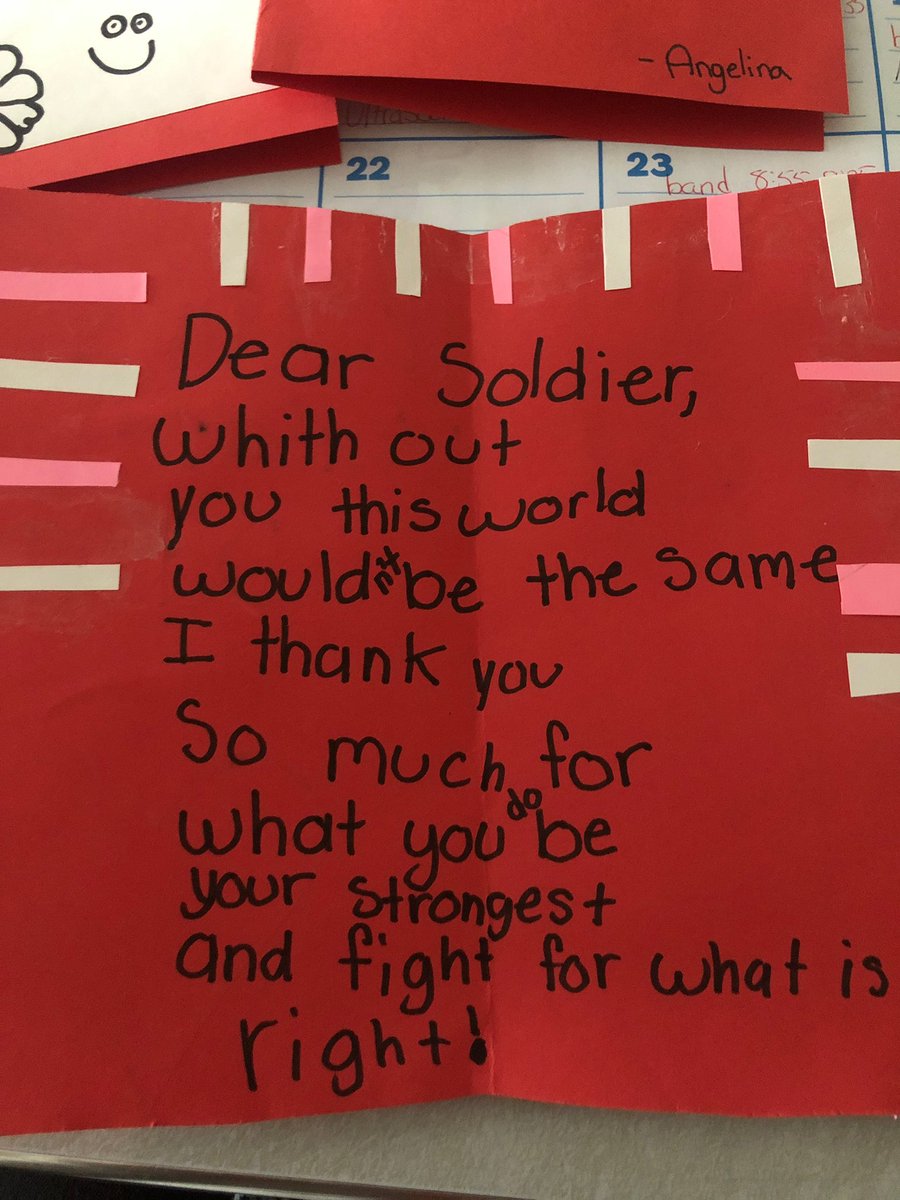 - Angelina
22
23
band 8:55
Dear Soldier,
whith out
you this world
wouldnt be the same
I thank you
So much for
what you do be
your strongest
and fight for what is
right!